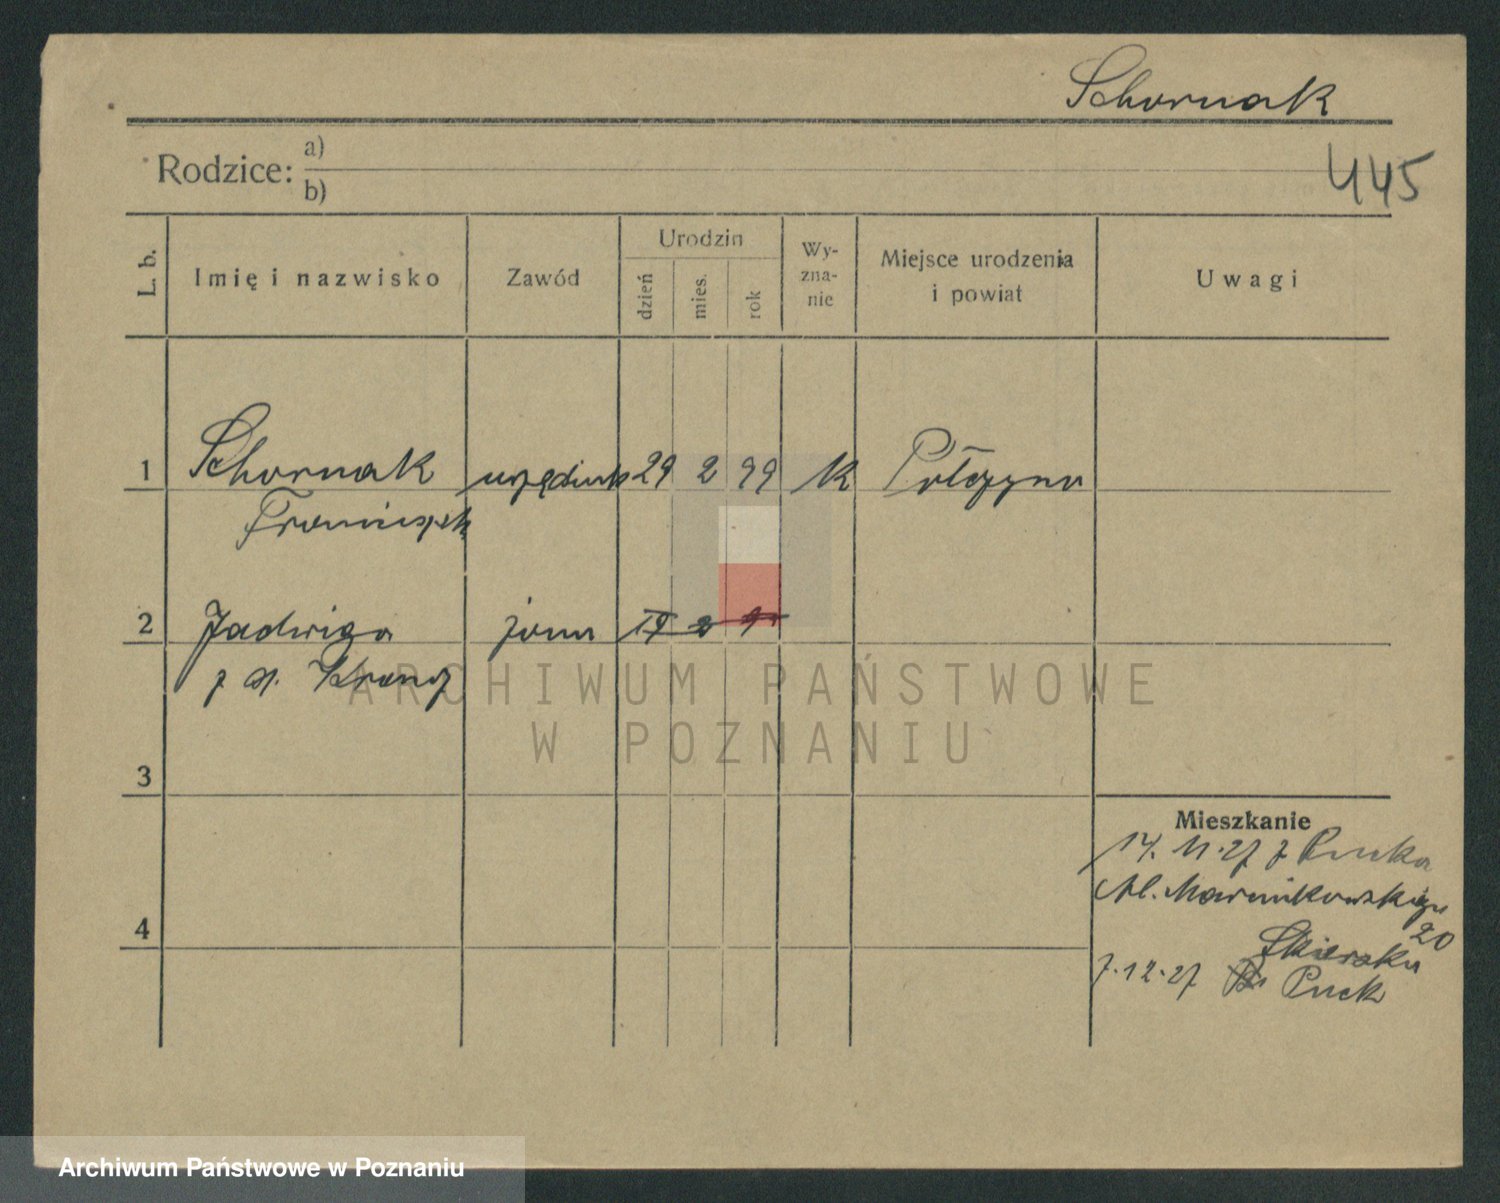 Schornak
Rodzice: a)
b)
445
L. b.
Imię i nazwisko
Zawód
Urodzin
dzień
mies.
rok
Wy-
zna-
nie
Miejsce urodzenia
i powiat
Uwagi
1 Schornak urzędnik 29 2 99 K Połczyno
Franciszek
2 Jadwiga żona 19 2
z d. Kranz
ARCHIWUM PAŃSTWOWE
W POZNANIU
3
Mieszkanie
14. 11. 27 z Pucka
Marcinkowskiego
20
4
7. 12. 27 Puck
Archiwum Państwowe w Poznaniu